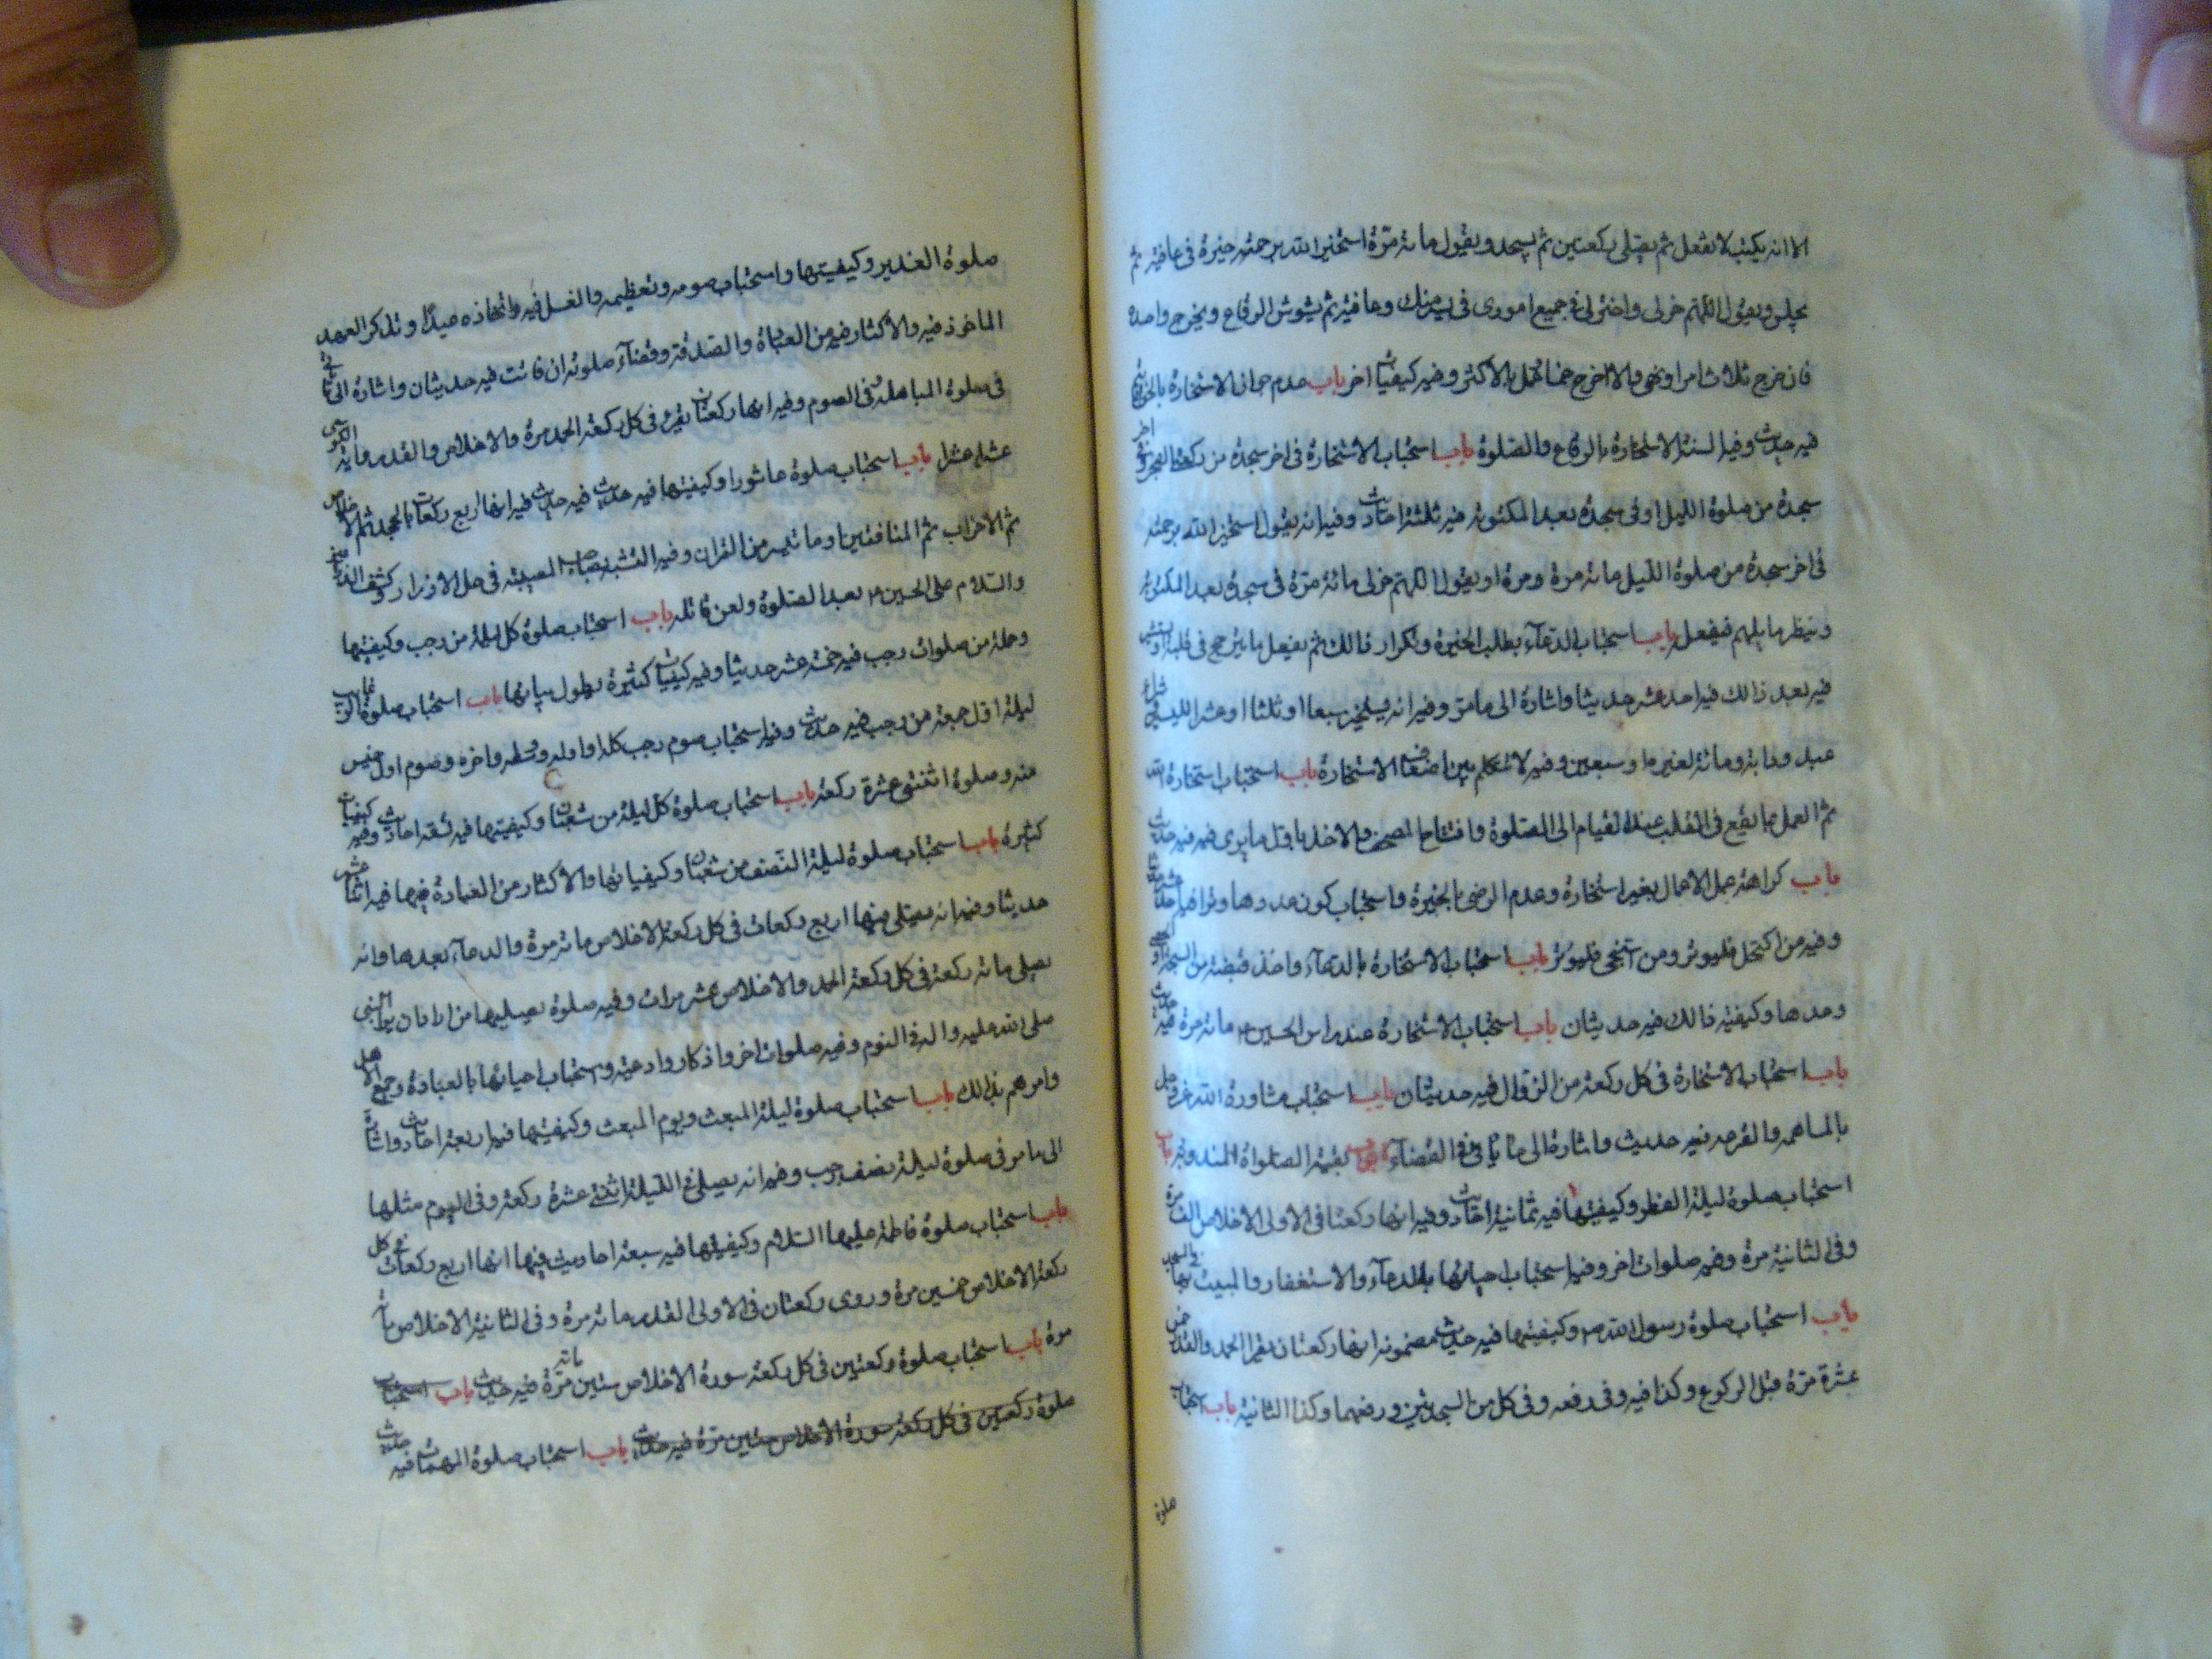 الا انه يكتب لا تفعل ثم يصلى ركعتين ثم يسجد ويقول مائة مرّة استخير الله برحمته خيرة فى عافية ثم
يجلس ويقول اللهم خر لى واختر لى فى جميع امورى فى يسر منك وعافية ثم يشوش الرقاع ويخرج واحدة
فان خرج ثلاث اخرج خمسا عمل بالاكثر وفيه كيفيات اخر باب عدم جواز الاستخارة بالخواتيم
فيه حديث وفيه السنة الاستخارة بالرقاع والصلوة باب استحباب الاستخارة فى اخر سجدة من ركعتى الفجر وفى اخر
سجدة من صلوة الليل او فى سجدة بعد المكتوبة فيه ثلثة احاديث وفيه انه يقول استخير الله برحمته
فى اخر سجدة من صلوة الليل مائة مرة ومرة او يقول اللهم خر لى مائة مرّة فى سجدة بعد المكتوبة
وينظر ما يلهم فيفعل باب استحباب الدعاء بطلب الخيرة وتكرار ذالك ثم يفعل ما يترجح فى قلبه او يستشير
فيه بعد ذالك فيه احد عشر حديثا واشارة الى ما مرّ وفيه انه يستخير سبعا او ثلثا او عشرا
عبد ودابة ومائة لغيرها وسبعين وفيه لا تتكلم بين اضعاف الاستخارة باب استحباب استخارة الله
ثم العمل بما يقع فى القلب عند القيام الى الصلوة وافتتاح المصحف والاخذ باوّل ما يرى فيه فيه حديث
باب كراهة عمل الاعمال بغير استخارة وعدم الرضى بالخيرة واستحباب كون عددها وترا فيه
وفيه من اكتحل فليوتر ومن استنجى فليوتر باب استحباب الاستخارة بالدعاء واخذ قبضة من السبحة او الحصى
وعدها وكيفية ذالك فيه حديثان باب استحباب الاستخارة عند راس الحسين ع مائة مرة فيه حديث
باب استحباب الاستخارة فى كل ركعة من الزوال فيه حديثان باب استحباب مشاورة الله عز وجل
بالمساهمة والقرعة فيه حديث واشارة الى ما ياتى فى القضاء بقية الصلواة المندوبة باب
استحباب صلوة ليلة الفطر وكيفيتها فيه ثمانية احاديث وفيه انها ركعتان فى الاولى الاخلاص الف مرة
وفى الثانية مرة وفيه صلوات اخر وفيه استحباب احيائها بالدعاء والاستغفار والمبيت بها فى المسجد
باب استحباب صلوة رسول الله ص وكيفيتها فيه حديث مضمونه انها ركعتان يقرا الحمد والقدر خمس
عشرة مرّة قبل الركوع وكذا فيه وفى رفعه وفى كل من السجدتين ورفعهما وكذا الثانية باب استحباب
صلوة
صلوة الغدير وكيفيتها واستحباب صومه وتعظيمه والغسل فيه واتخاذه عيدًا وتذكر العهد
الماخوذ فيه والاكثار فيه من العبادة والصدقة وقضآء صلوته ان فاتت فيه حديثان واشارة الى ما ياتى
فى صلوة المباهلة وفى الصوم وفيه انها ركعتان يقرء فى كل ركعة الحمد مرة والاخلاص والقدر واية الكرسى
عشرا عشرا باب استحباب صلوة عاشورا وكيفيتها فيه حديث فيه حديث فيه انها اربع ركعات بالحمد ثم الاخلاص
ثم الاحزاب ثم المنافقين او ما تيسر من القران وفيه التشبه باصحاب المصيبة فى حل الازرار وكشف الذراعين
والسلام على الحسين ع بعد الصلوة ولعن قاتله باب استحباب صلوة كل ليلة من رجب وكيفيتها
وجملة من صلوات رجب فيه خمسة عشر حديثا وفيه كيفيات كثيرة يطول بيانها باب استحباب صلوة الرغائب
ليلة اول جمعة من رجب فيه حديث وفيه استحباب صوم رجب كله واوله ووسطه واخره وصوم اول خميس
منه وصلوة اثنتى عشرة ركعة باب استحباب صلوة كل ليلة من شعبان وكيفيتها فيه تسعة احاديث وفيه كيفيات
كثيرة باب استحباب صلوة ليلة النصف من شعبان وكيفياتها والاكثار من العبادة فيها فيه اثنا عشر
حديثا وفيه انه يصلى فيها اربع ركعات فى كل ركعة الاخلاص مائة مرة والدعاء بعدها وانه
يصلى مائة ركعة فى كل ركعة الحمد والاخلاص عشر مرات وفيه صلوة يصليها من اراد ان يرى النبى
صلى الله عليه واله فى النوم وفيه صلوات اخر واذكار وادعية واستحباب احيائها بالعبادة وجمع الاهل
وامرهم بذالك باب استحباب صلوة ليلة المبعث ويوم المبعث وكيفيتها فيه اربعة احاديث واشارة
الى ما مر فى صلوة ليلة نصف رجب وفيه انه يصلى فى الليلة اثنتى عشرة ركعة وفى اليوم مثلها
باب استحباب صلوة فاطمة عليها السلام وكيفيتها فيه سبعة احاديث فيها انها اربع ركعات فى كل
ركعة الاخلاص خمسين مرة وروى ركعتان فى الاولى القدر مائة مرة وفى الثانية الاخلاص مائة
مرة باب استحباب صلوة ركعتين فى كل ركعة سورة الاخلاص ستين مرّة فيه حديث باب استحباب
صلوة ركعتين فى كل ركعة سورة الاخلاص ستين مرّة فيه حديث باب استحباب صلوة المهمات فيه حديث